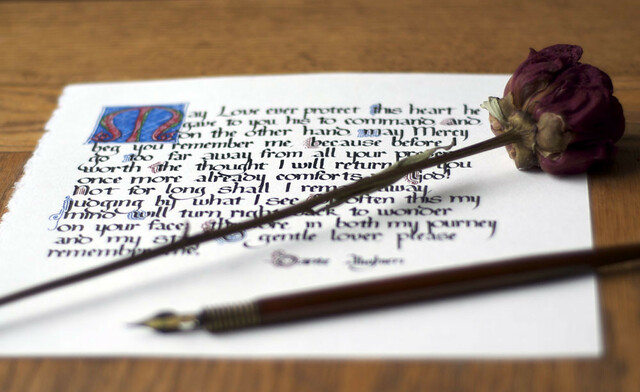 May Love ever protect this heart he
gave to you his to command and
on the other hand may Mercy
beg you remember me because before I
go too far away from all your
worth the thought I will return to you
once more already comforts God!
Not for long shall I remain away
judging by what I see often this my
mind will turn right back to wonder
on your face therefore in both my journey
and my stay gentle lover please
remember me.
Dante Alighieri